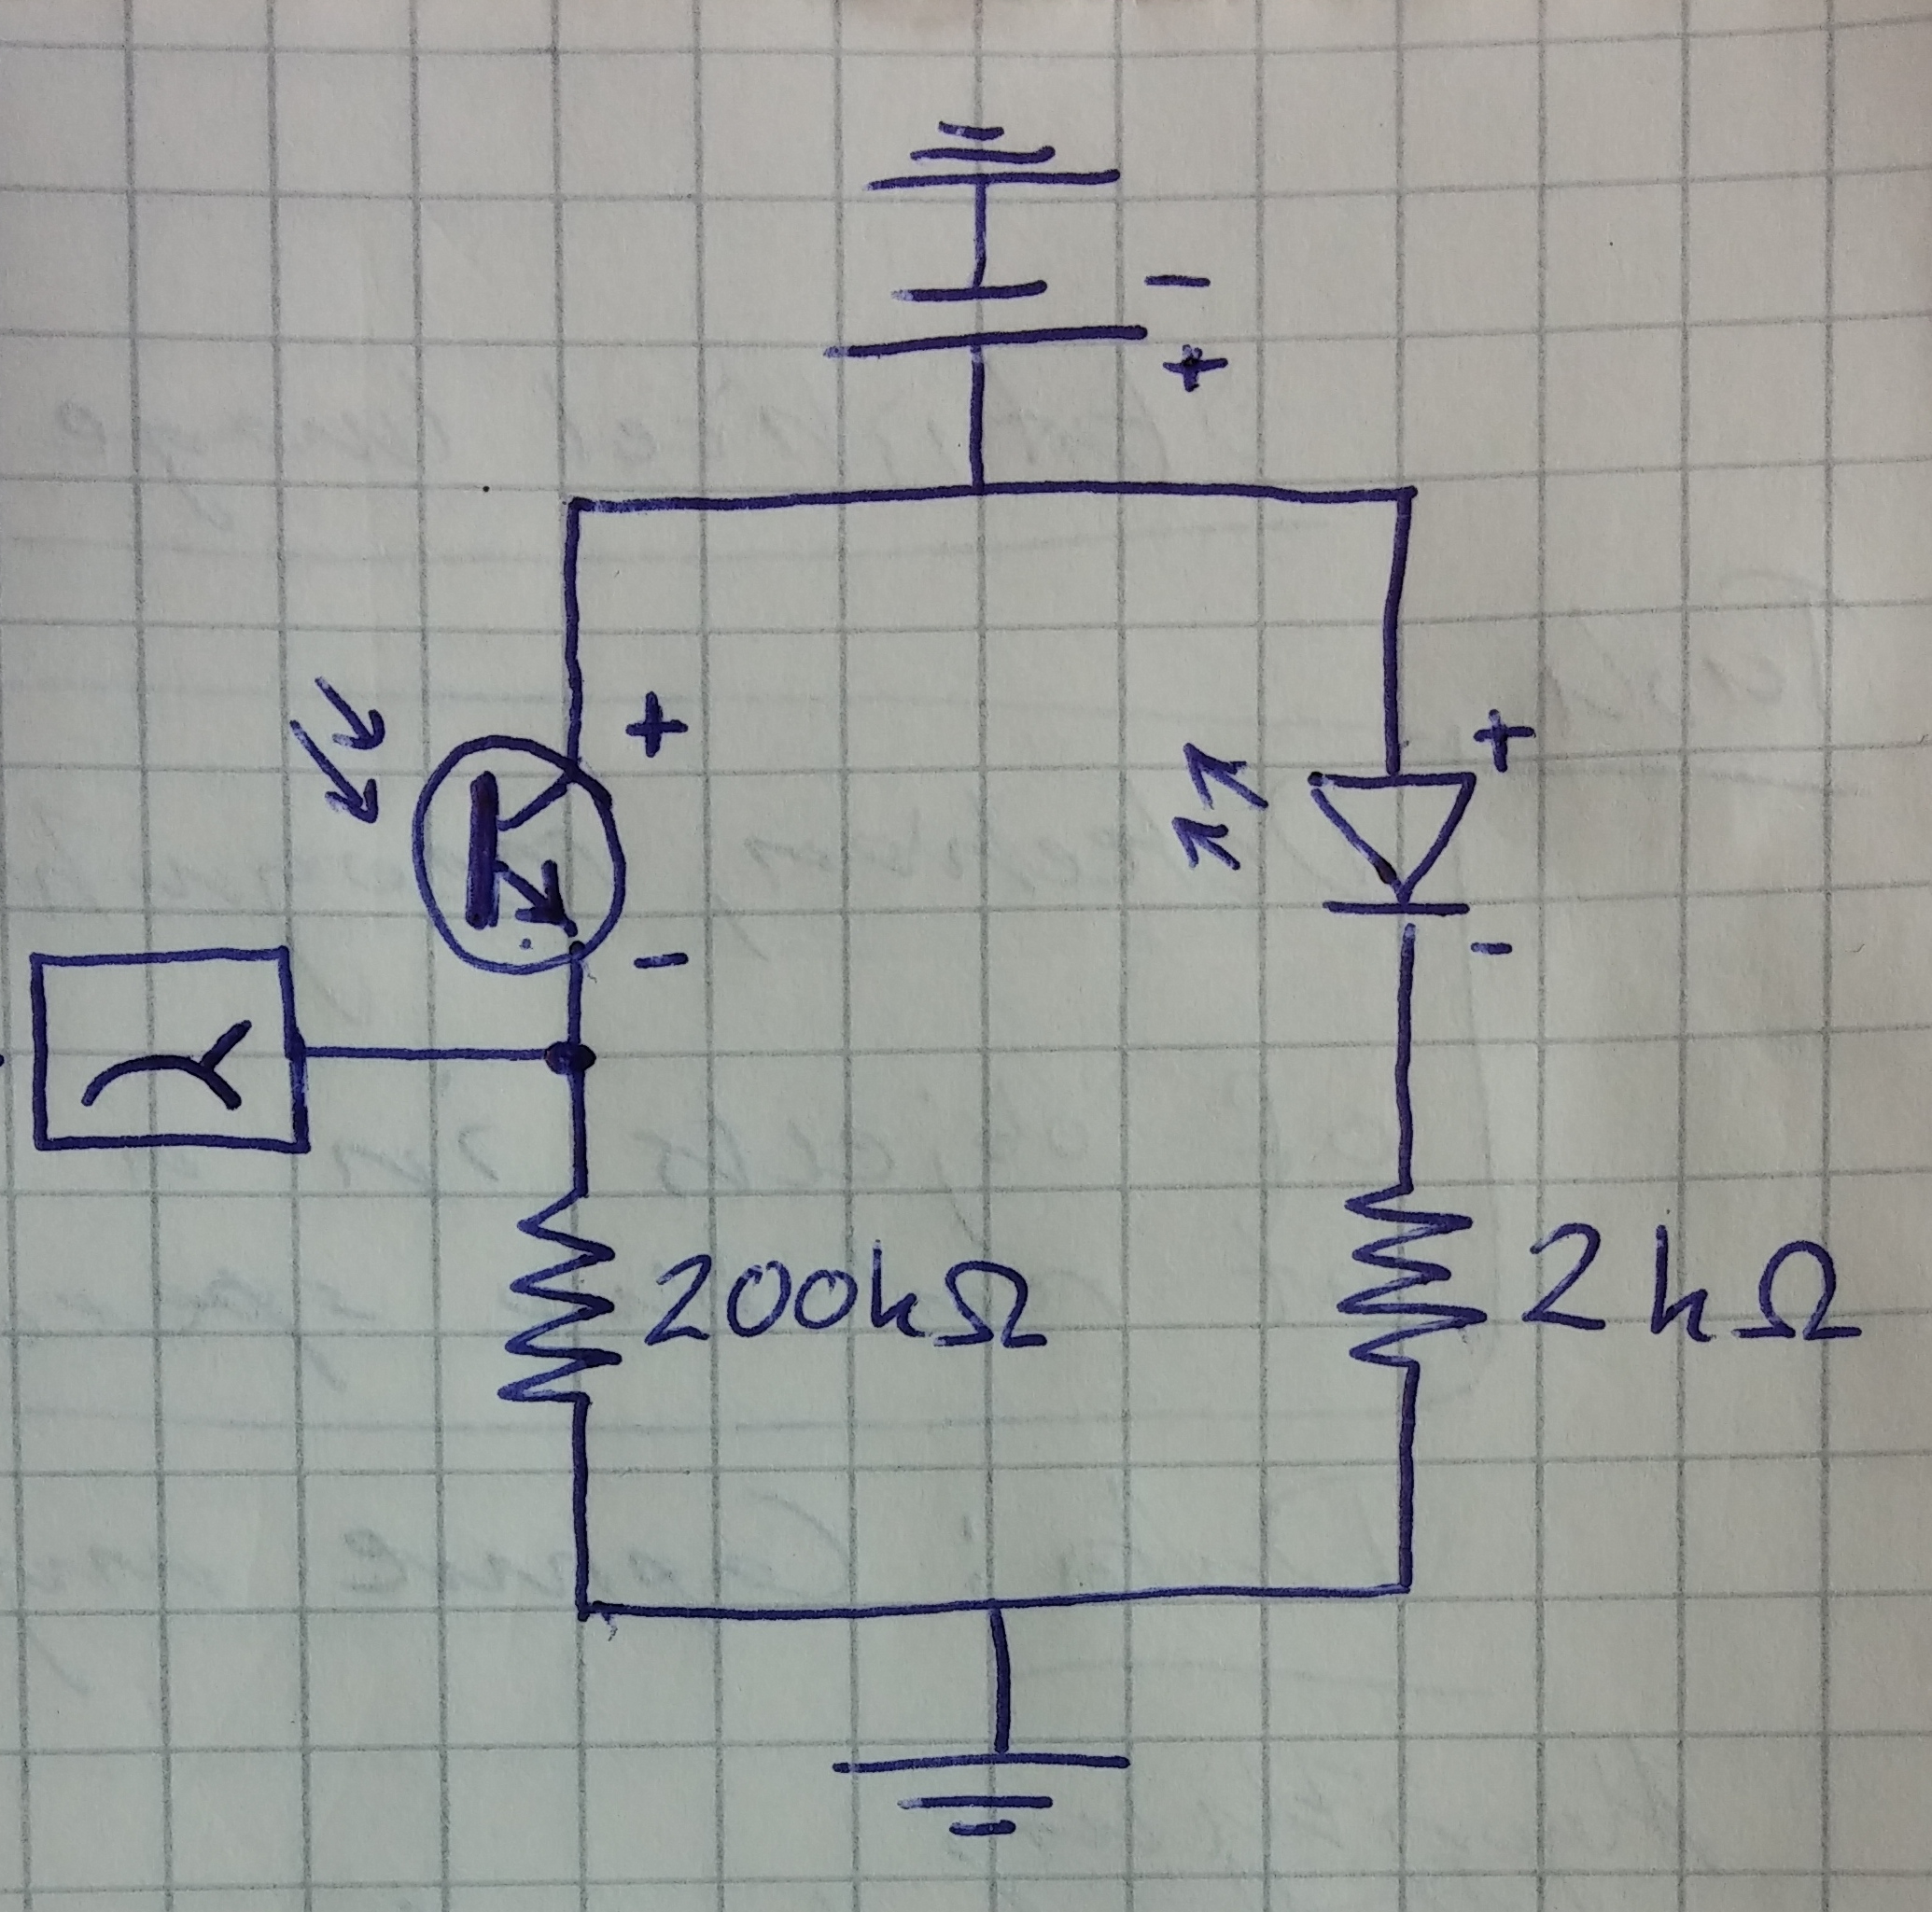 -
+
+ +
- -
200kΩ 2kΩ